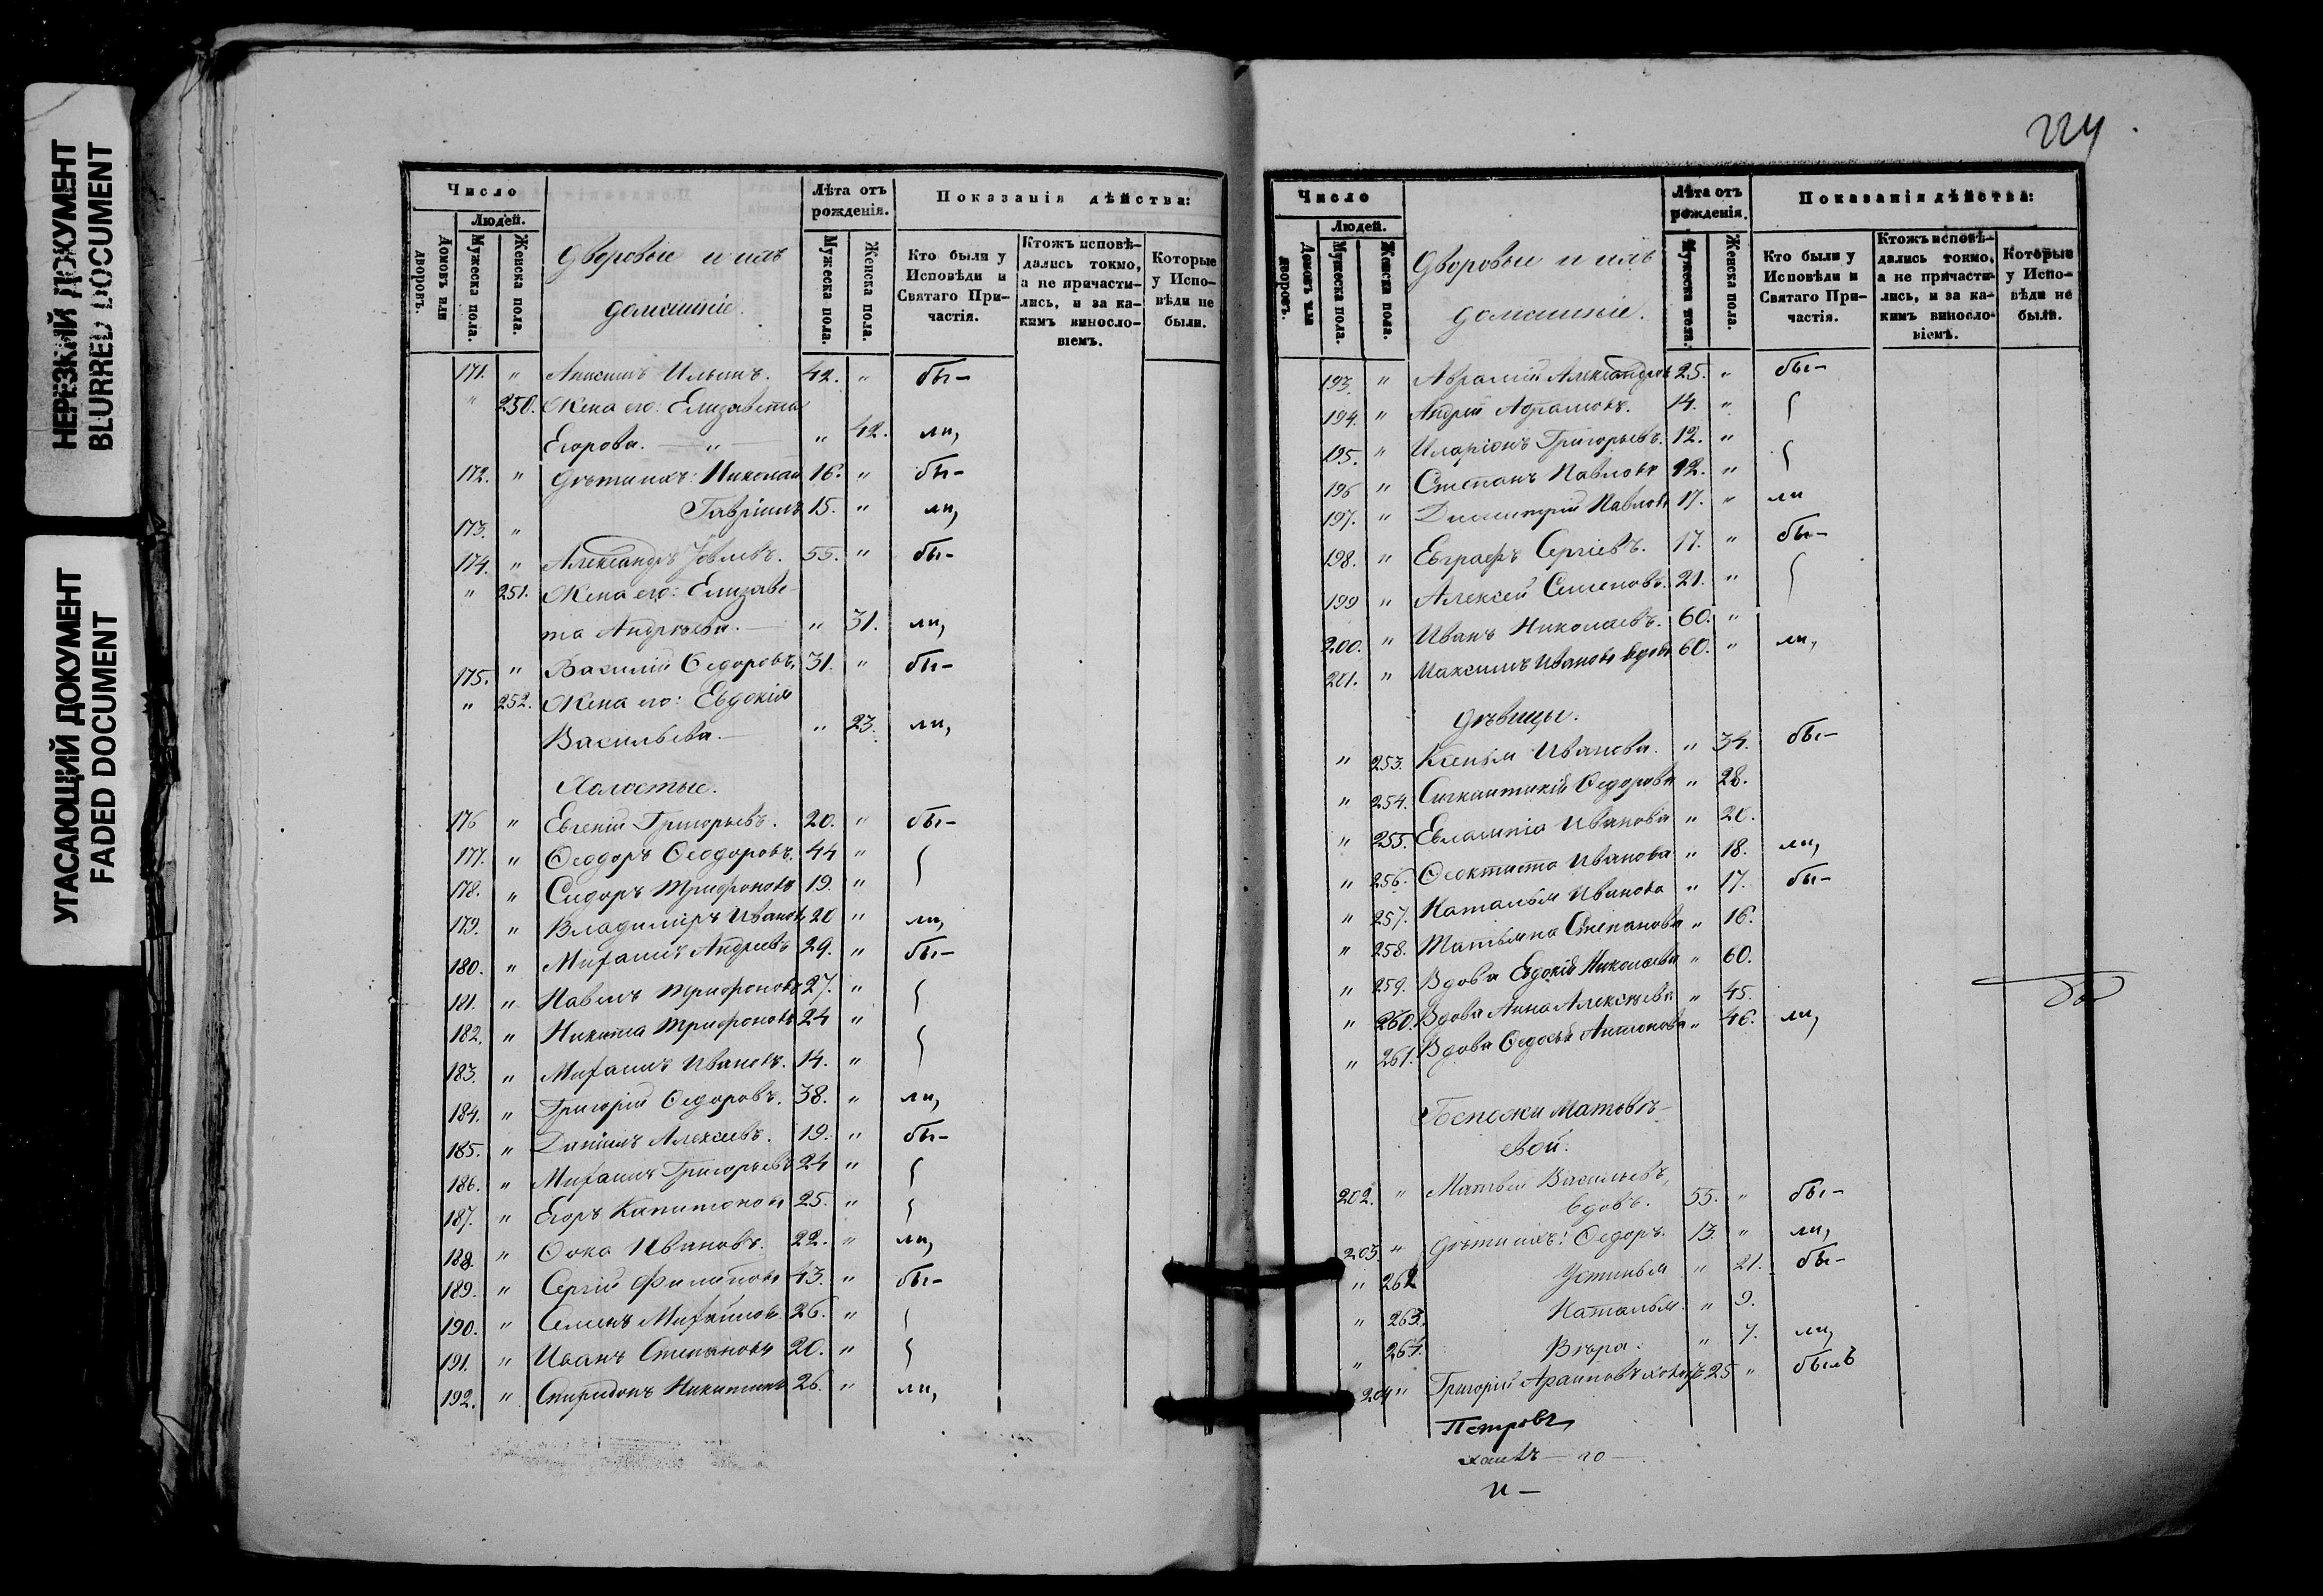 НЕРЕЗКИЙ ДОКУМЕНТ
BLURRED DOCUMENT
УГАСАЮЩИЙ ДОКУМЕНТ
FADED DOCUMENT
Число
Людей.
Домовъ или дворовъ.
Мужеска пола.
Женска пола.
Дворовые и ихъ
домашніе.
Лѣта отъ рожденія.
Мужеска пола.
Женска пола.
Показанія дѣйства:
Кто были у Исповѣди и Святаго Причастія.
Ктожъ исповѣ-
дались токмо,
а не причасти-
лись, и за ка-
кимъ винослo-
віемъ.
Которые
у Испо-
вѣди не
были.
171. " Анисимъ Ильинъ. 42. " бы-
" 250. Жена его: Елизавета
Егорова. — " — " 42. ли,
172. " Дѣти ихъ: Николай 16. " бы-
173. " Гавріилъ 15. " ли,
174. " Александръ Іовлевъ. 55. " бы-
" 251. Жена его: Елизаве-
та Андреева. — " 31. ли,
175. " Василій Ѳедоровъ. 31. " бы-
" 252. Жена его: Евдокія
Васильева. — " 23. ли,
Холостые.
176 " Евгеній Григорьевъ. 20. " бы-
177. " Ѳеодоръ Ѳеодоровъ. 44 "
178. " Сидоръ Трифоновъ 19. "
179. " Владиміръ Ивановъ 20 " ли,
180. " Михаилъ Андреевъ 29. " бы-
181. " Павелъ Трифоновъ 27. "
182. " Никита Трифоновъ 24 "
183. " Михаилъ Ивановъ. 14. "
184. " Григорій Ѳедоровъ. 38. " ли,
185. " Даніилъ Алексеевъ. 19. " бы-
186. " Михаилъ Григорьевъ 24 "
187. " Егоръ Капитоновъ 25. "
188. " Ѳока Ивановъ. 22. " ли,
189. " Сергій Филиповъ 43. " бы-
190. " Семенъ Михайловъ 26. "
191. " Иванъ Степановъ 20. "
192. " Спиридонъ Никитинъ 26. " ли,
224
Число
Людей.
Домовъ или дворовъ.
Мужеска пола.
Женска пола.
Дворовые и ихъ
домашніе.
Лѣта отъ рожденія.
Мужеска пола.
Женска пола.
Показанія дѣйства:
Кто были у Исповѣди и Святаго Причастія.
Ктожъ исповѣ-
дались токмо,
а не причасти-
лись, и за ка-
кимъ винослo-
віемъ.
Которые
у Испо-
вѣди не
были.
193. " Аврамій Александровъ 25. " бы-
194. " Андрей Абрамовъ. 14. "
195. " Иларіонъ Григорьевъ. 12. "
196 " Степанъ Павловъ 12. "
197. " Димитрій Павловъ 17. " ли
198. " Евграфъ Сергіевъ. 17. " бы-
199 " Алексей Семеновъ. 21. "
200. " Иванъ Николаевъ. 60. "
201. " Максимъ Ивановъ вдовъ 60. " ли,
Дѣвицы.
" 253. Ксенья Иванова. " 34. бы-
" 254. Ѳедорова " 28.
" 255. Евлампія Иванова " 20.
" 256. Ѳеоктиста Иванова " 18. ли,
" 257. Наталья Иванова " 17. бы-
" 258. Татьяна Степанова " 16.
" 259. Вдова Евдокія Николаева " 60.
" 260. Вдова Анна Алексѣева " 45.
" 261. Вдова Ѳедосья Антонова " 46. ли,
Госпожи Матвѣ-
евой.
202. " Матвей Васильевъ,
вдовъ. 55. " бы-
203. " Дѣти ихъ: Ѳедоръ. 13. " ли,
" 262 Устинья " 21. бы-
" 263. Наталья. " 9.
" 264. Вѣра. " 7. ли,
204 " Григорій 25 " былъ
Петровъ